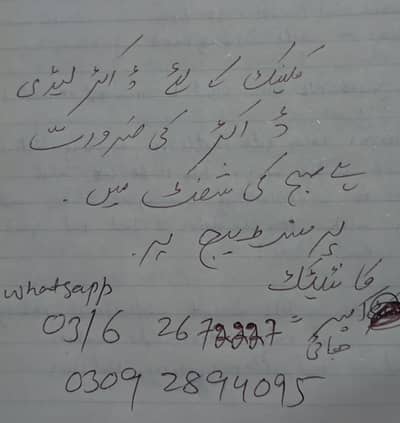 کلینک کے لئے ڈاکٹر لیڈی
ڈاکٹر کی ضرورت
ہے صبح کی شفٹ میں.
پرسنٹیج پر.
کانٹیکٹ
whatsapp
0316 2672227 =
بھائی
0309 2894095